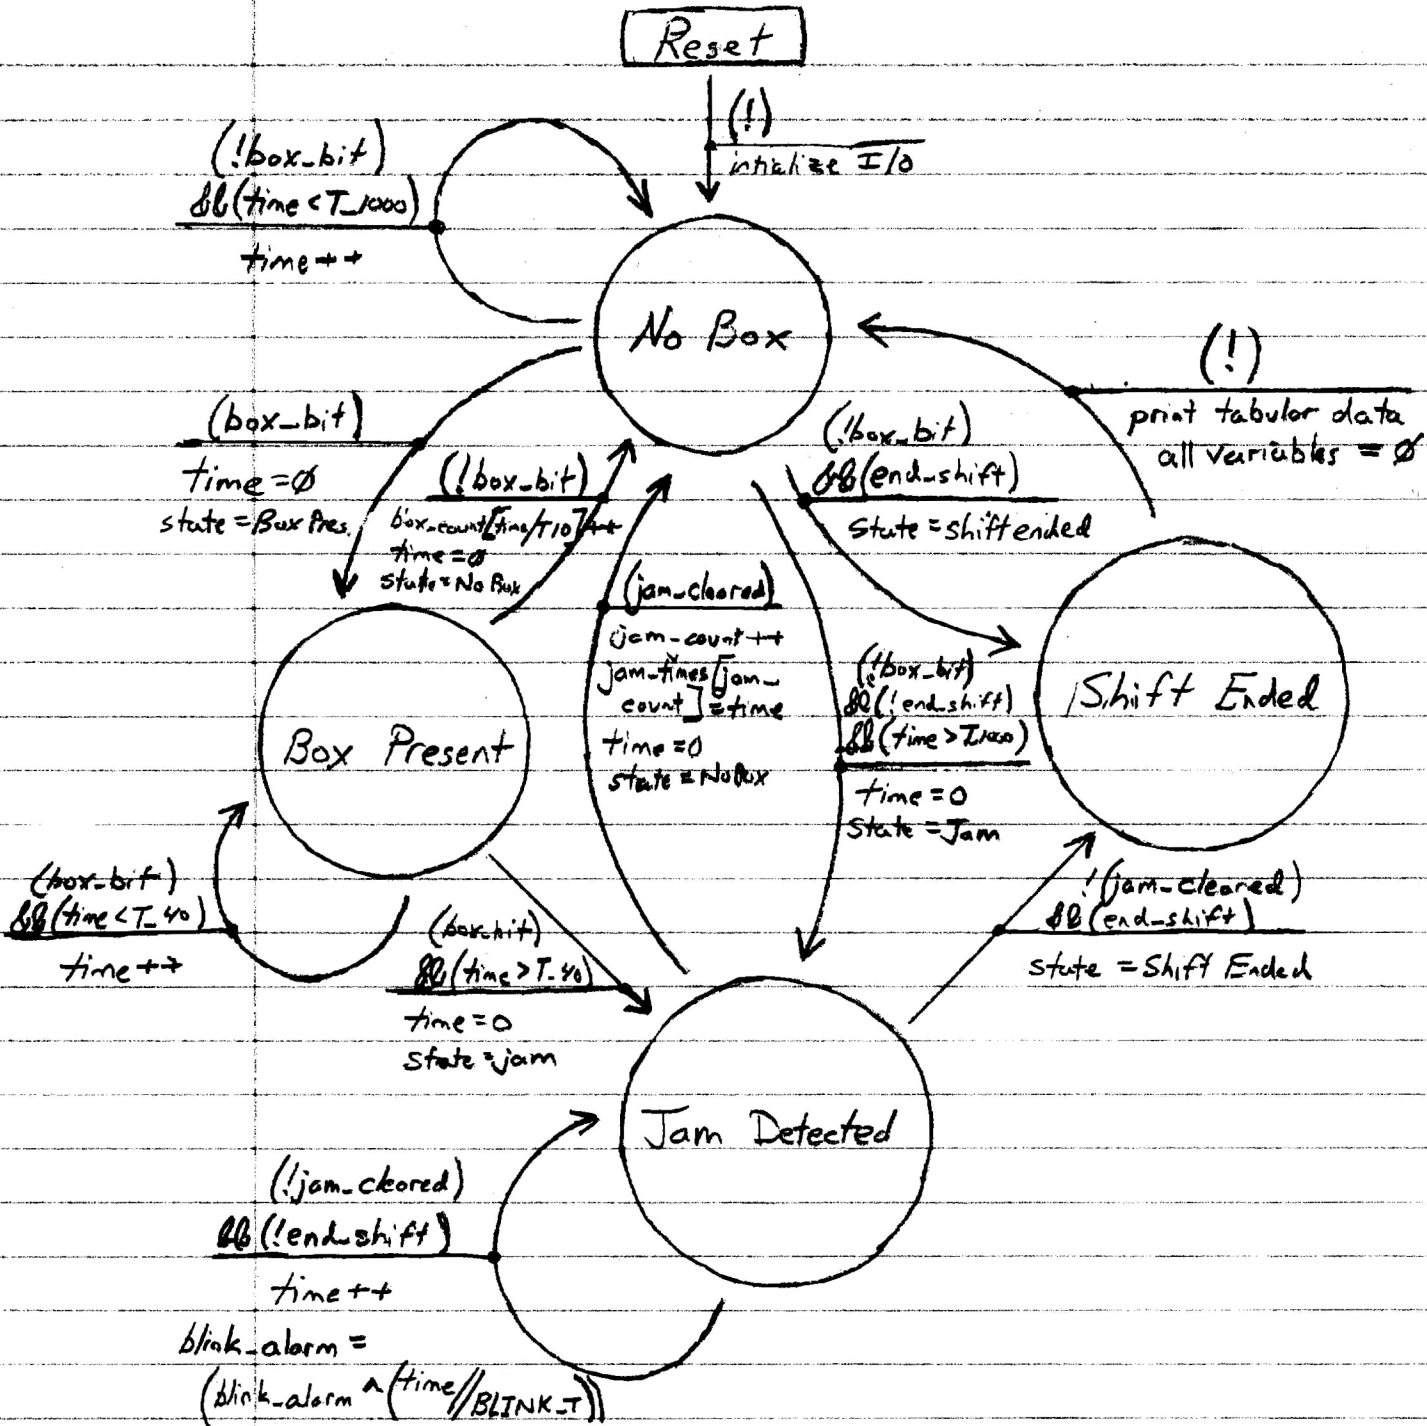 Reset
(!)
intialize I/O
(!box_bit)
&&(time < T_1000)
time++
No Box
(!)
print tabular data
all variables = 0
(box_bit)
time = 0
state = Box Pres.
(!box_bit)
box_count[time/T10]++
time = 0
state = No Box
(!box_bit)
&&(end_shift)
state = shift ended
(jam_cleared)
jam_count++
jam_times[jam_
count] = time
time = 0
state = No Box
(!box_bit)
&&(!end_shift)
&&(time > T_1000)
time = 0
state = Jam
Shift Ended
Box Present
(box_bit)
&&(time < T_40)
time++
(box_bit)
&&(time > T_40)
time = 0
state = jam
!(jam_cleared)
&&(end_shift)
state = Shift Ended
Jam Detected
(!jam_cleared)
&&(!end_shift)
time++
blink_alarm =
(blink_alarm ^ (time//BLINK_T))